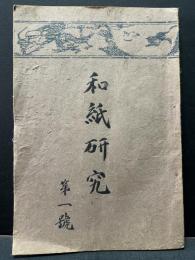 和紙研究
第一號